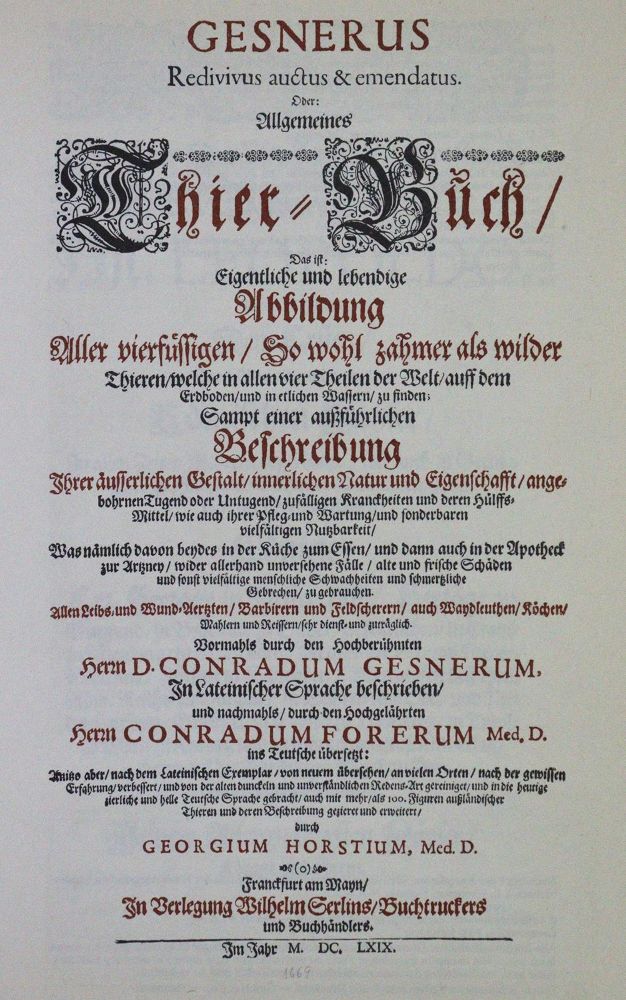 GESNERUS
Redivivus auctus & emendatus.
Oder:
Allgemeines
Thier-Bůch/
Das ist:
Eigentliche und lebendige
Abbildung
Aller vierfüssigen/ So wohl zahmer als wilder
Thieren/welche in allen vier Theilen der Welt/auff dem
Erdboden/und in etlichen Wassern/ zu finden;
Sampt einer außführlichen
Beschreibung
Ihrer äusserlichen Gestalt/innerlichen Natur und Eigenschafft/ ange-
bohrnen Tugend oder Untugend/zufälligen Kranckheiten und deren Hülffs-
Mittel/ wie auch ihrer Pfleg-und Wartung/und sonderbaren
vielfältigen Nutzbarkeit/
Was nämlich davon beydes in der Küche zum Essen/ und dann auch in der Apotheck
zur Artzney/ wider allerhand unversehene Fälle/ alte und frische Schäden
und sonst vielfältige menschliche Schwachheiten und schmertzliche
Gebrechen/ zu gebrauchen.
Allen Leibs-und Wund-Aertzten/ Barbirern und Feldscherern/ auch Waydleuthen/ Köchen/
Mahlern und Reissern/sehr dienst-und zuträglich.
Vormahls durch den Hochberühmten
Herrn D. CONRADUM GESNERUM,
In Lateinischer Sprache beschrieben/
und nachmahls/ durch den Hochgelährten
Herrn CONRADUM FORERUM Med. D.
ins Teutsche übersetzt:
Anitzo aber/ nach dem Lateinischen Exemplar/von neuem übersehen/an vielen Orten/ nach der gewissen
Erfahrung/verbessert/und von der alten dunckeln und unverständlichen Redens-Art gereiniget/und in die heutige
zierliche und helle Teutsche Sprache gebracht/auch mit mehr/als 100. Figuren außländischer
Thieren und deren Beschreibung gezieret und erweitert/
durch
GEORGIUM HORSTIUM, Med. D.
(o)
Franckfurt am Mayn/
In Verlegung Wilhelm Serlins/Buchtruckers
und Buchhändlers.
Im Jahr M. DC. LXIX.
1669